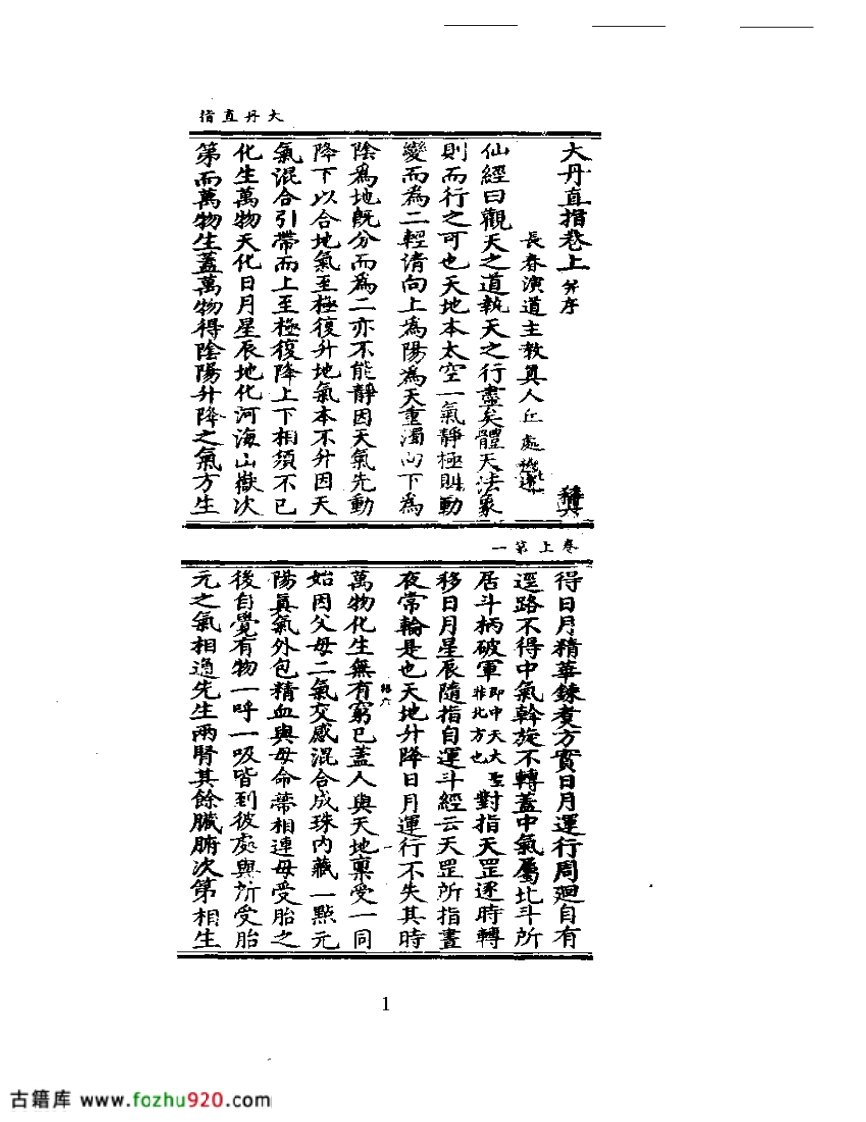 大丹直指
大丹直指卷上 并序
長春演道主教眞人丘處機述
稱六
仙經曰觀天之道執天之行盡矣體天法象
則而行之可也天地本太空一氣靜極則動
變而爲二輕清向上爲陽爲天重濁向下爲
陰爲地旣分而爲二亦不能靜因天氣先動
降下以合地氣至極復升地氣本不升因天
氣混合引帶而上至極復降上下相須不已
化生萬物天化日月星辰地化河海山嶽次
第而萬物生蓋萬物得陰陽升降之氣方生
卷上第一
得日月精華鍊煑方實日月運行周迴自有
逕路不得中氣斡旋不轉蓋中氣屬北斗所
居斗柄破軍卽中天大聖非北方也對指天罡逐時轉
移日月星辰隨指自運斗經云天罡所指晝
夜常輪是也天地升降日月運行不失其時
萬物化生無有窮已蓋人與天地稟受一同
始因父母二氣交感混合成珠內藏一點元
陽眞氣外包精血與母命蔕相連母受胎之
後自覺有物一呼一吸皆到彼處與所受胎
元之氣相通先生兩腎其餘臟腑次第相生
1
古籍库 www.fozhu920.com